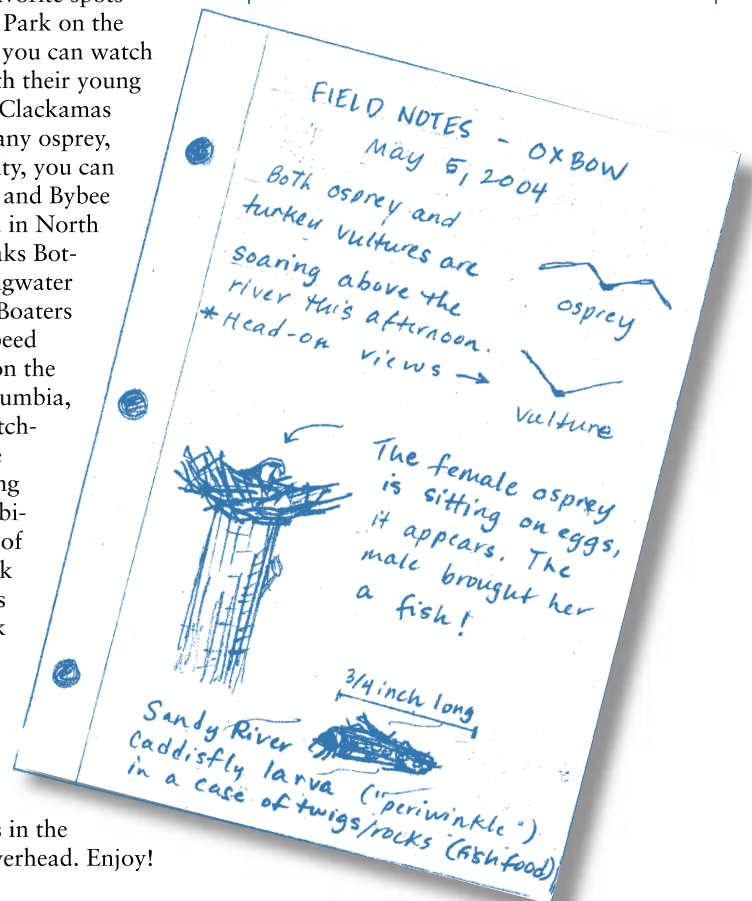 vorite spots
Park on the
you can watch
h their young
Clackamas
any osprey,
ty, you can
and Bybee
in North
aks Bot-
gwater
Boaters
peed
on the
umbia,
tch-
e
ng
bi-
of
k
s
k
s in the
verhead. Enjoy!
FIELD NOTES - OXBOW
May 5, 2004
Both osprey and
turkey vultures are
soaring above the
river this afternoon.
*Head-on views →
osprey
vulture
The female osprey
is sitting on eggs,
it appears. The
male brought her
a fish!
3/4 inch long
Sandy River
caddisfly larva ("periwinkle")
in a case of twigs/rocks (fishfood)